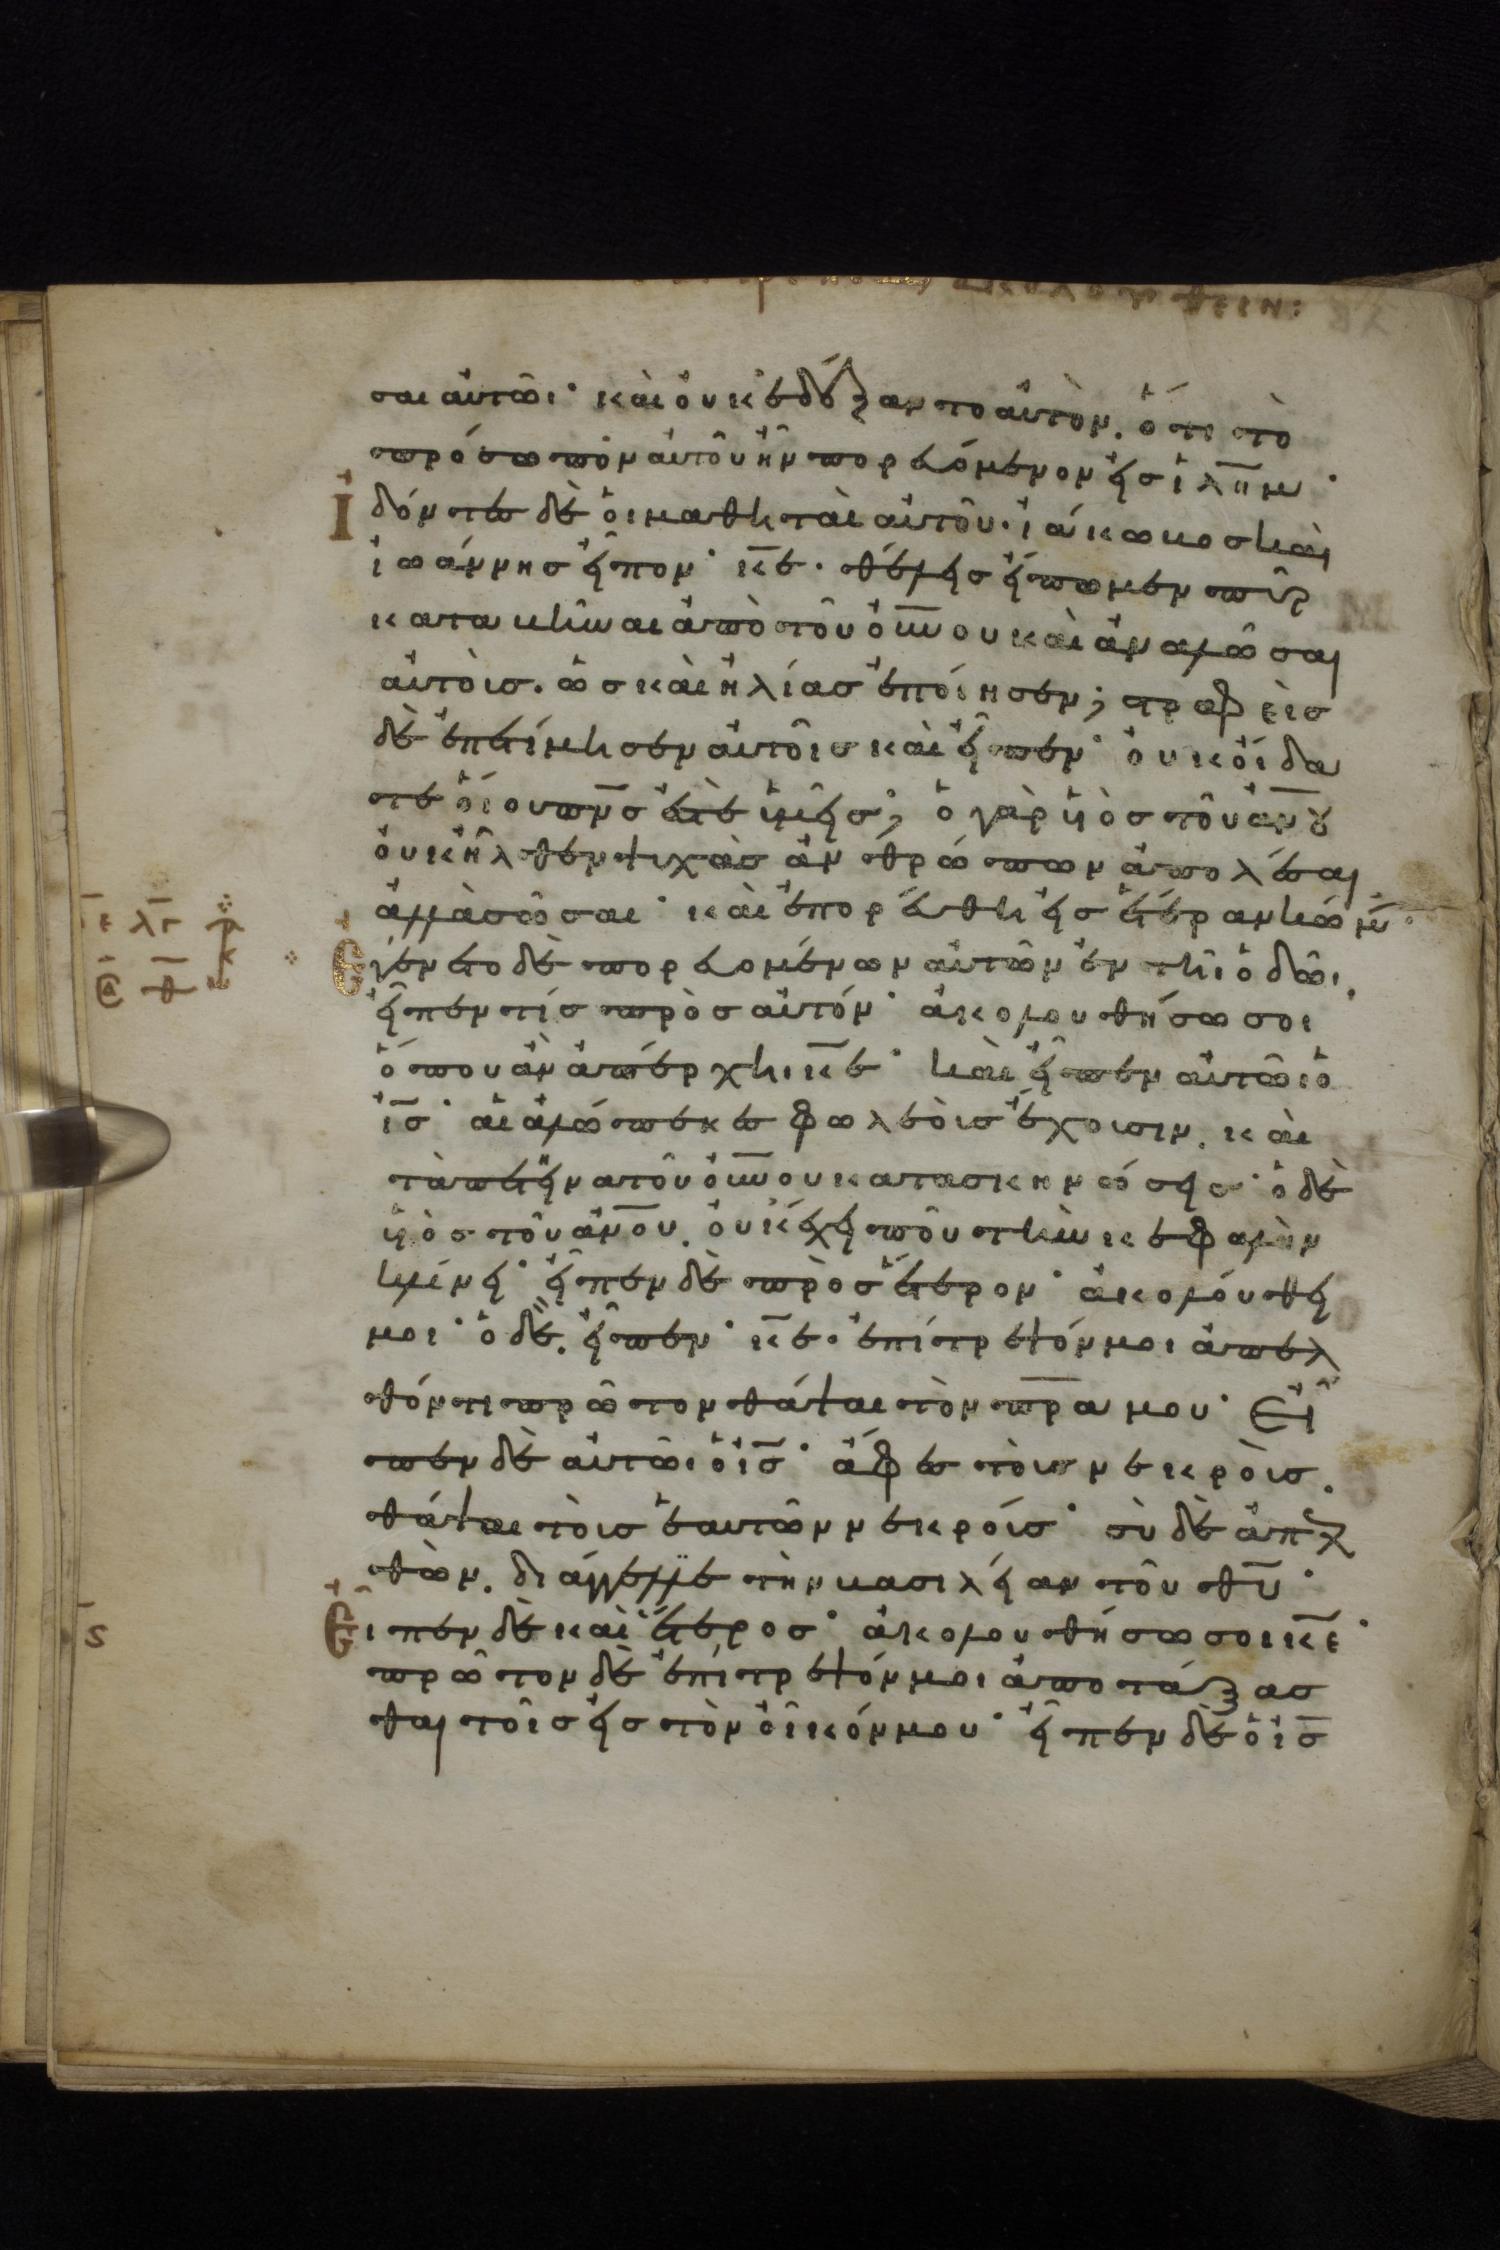 ἀκολουθεῖν:
σαι αὐτῶι· καὶ οὐκ ἐδέξαντο αὐτὸν. ὅτι τὸ
πρόσωπον αὐτοῦ ἦν πορευόμενον εἰς ἰλημ·
Ἰδόντες δὲ οἱ μαθηταὶ αὐτοῦ· ἰάκωβος καὶ
ἰωάννης εἶπον· κε· θέλεις εἴπωμεν πῦρ
καταβῆναι ἀπὸ τοῦ οὐνου καὶ ἀναλῶσαι
αὐτοὶς. ὡς καὶ ἠλίας ἐποίησεν; στραφεὶς
δὲ ἐπετίμησεν αὐτοῖς καὶ εἶπεν· οὐκ οἴδα
τε οἵου πνς ἐστὲ ὑμεῖς; ὁ γὰρ υἱὸς τοῦ ανου
οὐκ ἦλθεν ψυχὰς ἀνθρώπων ἀπολέσαι
ἀλλὰ σῶσαι· καὶ ἐπορεύθη εἰς ἑτέραν κώμ·
Ἐγένετο δὲ πορευομένων αὐτῶν ἐν τῆι ὁδῶι,
εἶπέν τίς πρὸς αὐτόν· ἀκολουθήσω σοι
ὅπου ἂν ἀπέρχηι κε· καὶ εἶπεν αὐτῶι ὁ
ις· αἱ ἀλώπεκες φωλεοὺς ἔχουσιν. καὶ
τὰ πετεινα τοῦ οὐνου κατασκηνώσεις· ὁ δὲ
υἱὸς τοῦ ανου. οὐκ ἔχει ποῦ τὴν κεφαλὴν
κλίνει· εἶπεν δὲ πρὸς ἕτερον· ἀκολούθει
μοι· ὁ δὲ. εἶπεν· κε· ἐπίτρεψόν μοι ἀπελ
θόντι πρῶτον θάψαι τὸν πρα μου· Εἶ
πεν δὲ αὐτῶι ὁ ις· ἄφες τοὺς νεκροὺς.
θάψαι τοὺς ἑαυτῶν νεκρούς· σὺ δὲ ἀπελ
θὼν. διάγγελλε τὴν βασιλείαν τοῦ θυ·
Εἶπεν δὲ καὶ ἕτερος· ἀκολουθήσω σοι κε·
πρῶτον δὲ ἐπίτρεψόν μοι ἀποτάξασ
θαι τοῖς εἰς τὸν οἶκόν μου· εἶπεν δὲ ὁ ις